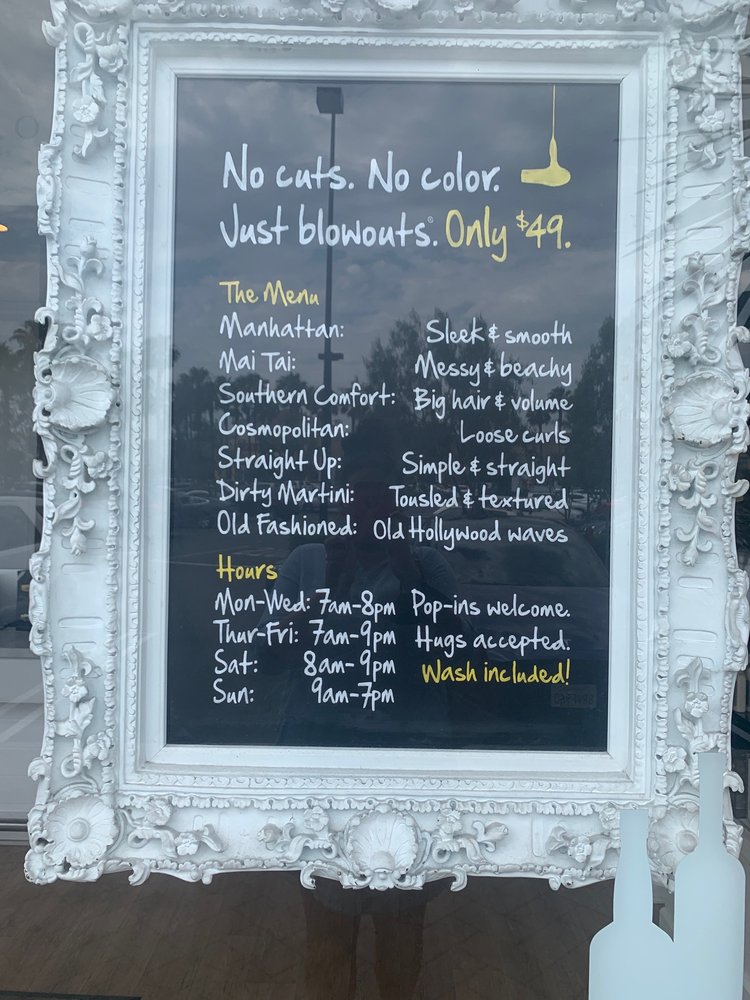 No cuts. No color.
Just blowouts.® Only $49.
The Menu
Manhattan: Sleek & smooth
Mai Tai: Messy & beachy
Southern Comfort: Big hair & volume
Cosmopolitan: Loose curls
Straight Up: Simple & straight
Dirty Martini: Tousled & textured
Old Fashioned: Old Hollywood waves
Hours
Mon-Wed: 7am-8pm Pop-ins welcome.
Thur-Fri: 7am-9pm Hugs accepted.
Sat: 8am-9pm Wash included!
Sun: 9am-7pm